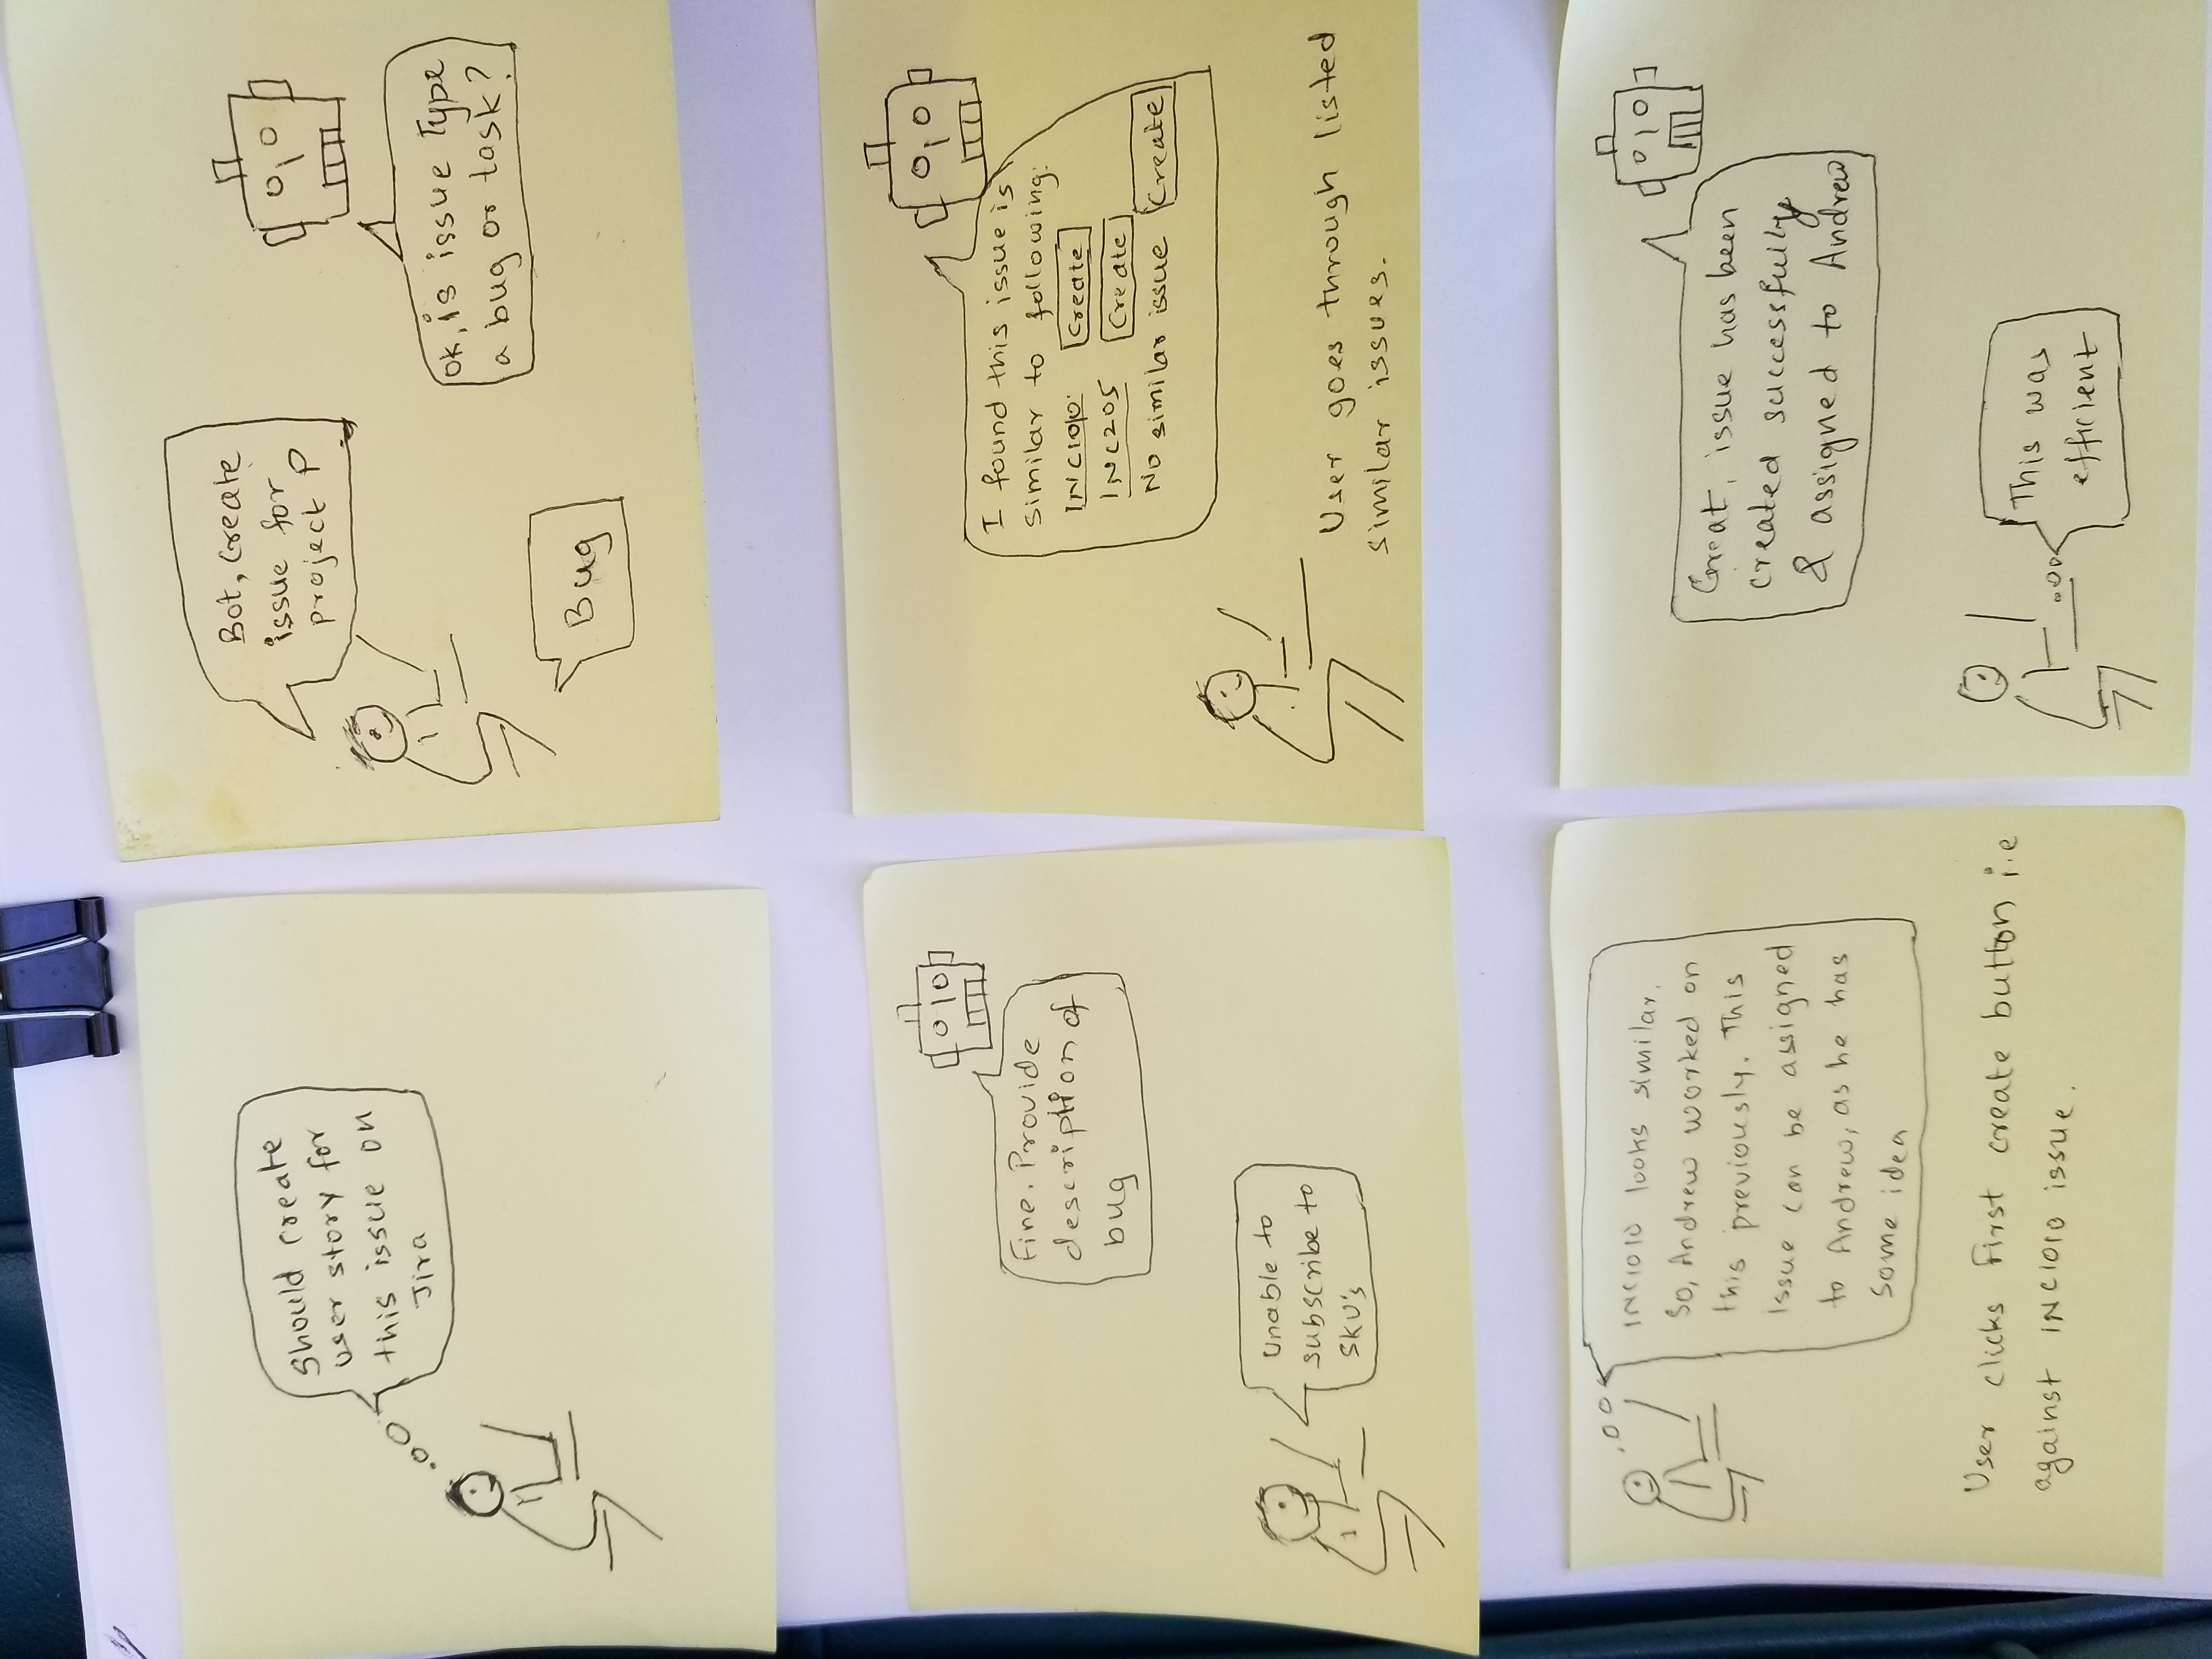 Should create
user story for
this issue on
Jira
Bot, Create
issue for
project P
OK, is issue Type
a bug or task?
Bug
Fine. Provide
description of
bug
Unable to
subscribe to
SKU's
I found this issue is
similar to following:
INC1010: Create
INC205 Create
No similar issue Create
User goes through listed
similar issues.
INC1010 looks similar.
So, Andrew worked on
this previously. This
issue can be assigned
to Andrew, as he has
some idea
User clicks first create button i.e
against INC1010 issue.
Great, issue has been
created successfully
& assigned to Andrew
This was
efficient